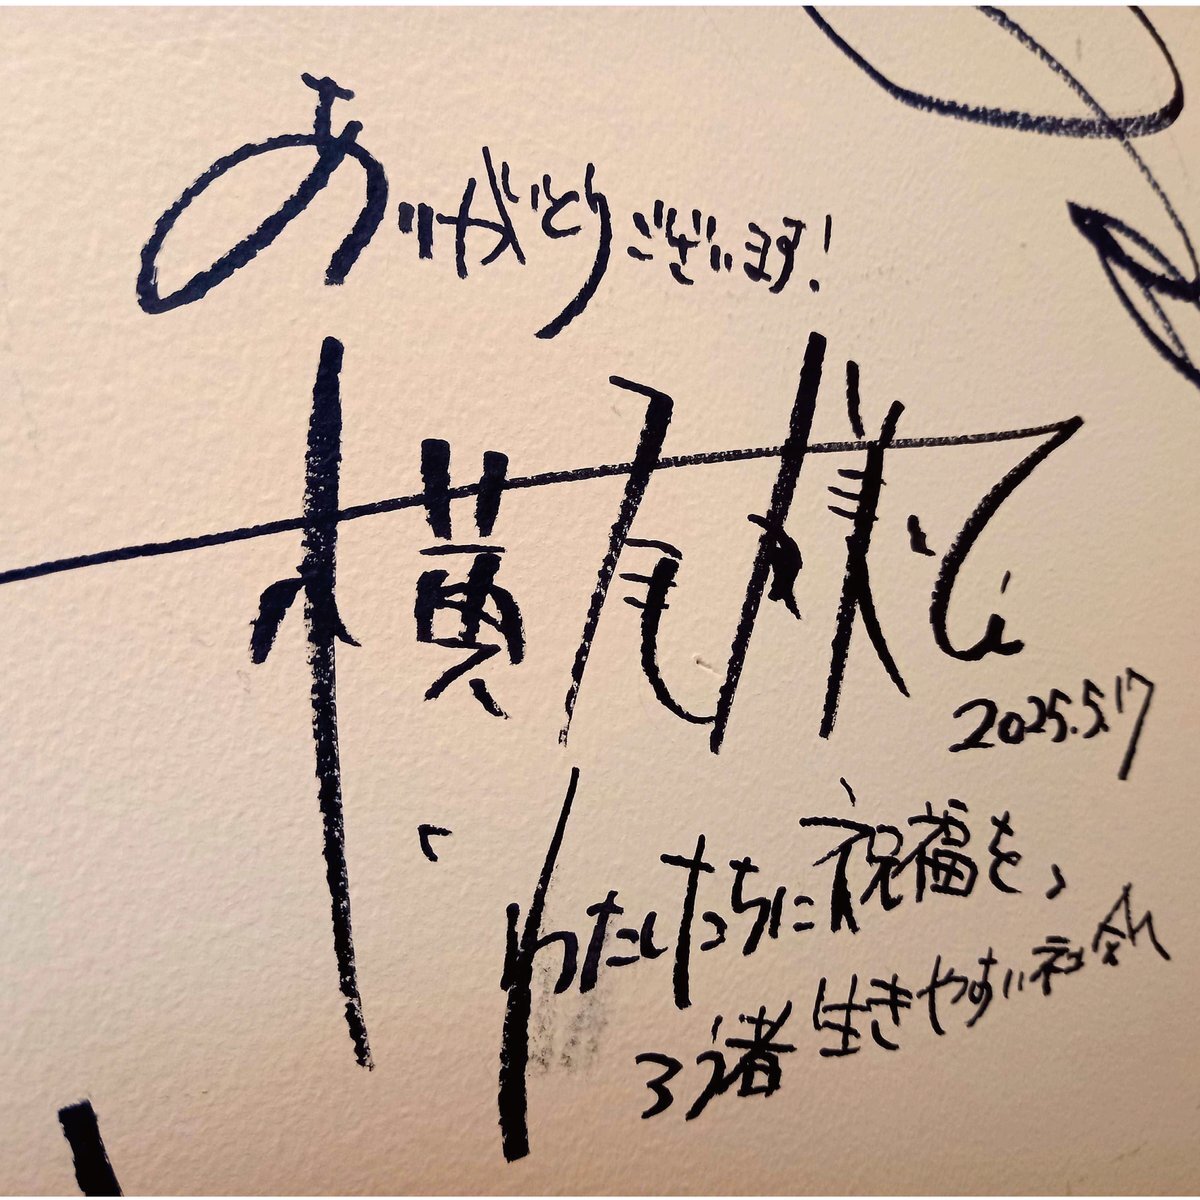 ありがとうございます!
横尾様
2025.5.17
わたしたちに祝福を、
ろう者 生きやすい社会へ